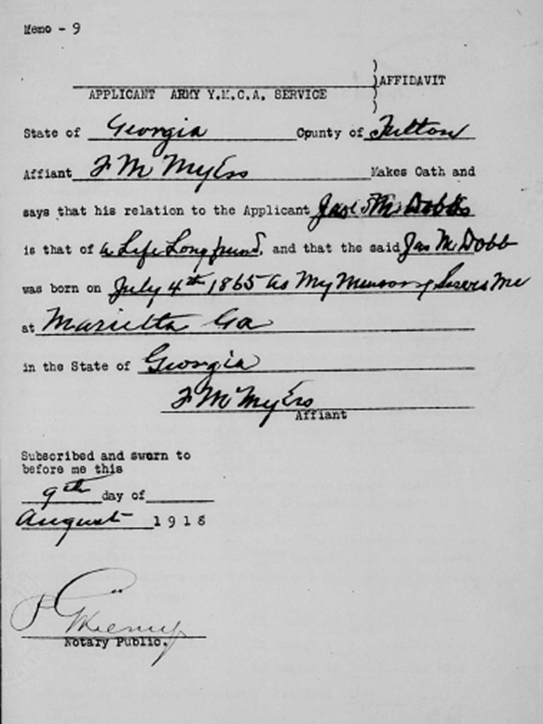 Memo - 9
AFFIDAVIT
APPLICANT ARMY Y.M.C.A. SERVICE
State of Georgia County of Fulton
Affiant F M Myers Makes Oath and
says that his relation to the Applicant Jas M Dobbs
is that of a Life Long friend, and that the said Jas M Dobb
was born on July 4th 1865 as My Memory Serves Me
at Marietta Ga
in the State of Georgia
F M Myers
Affiant
Subscribed and sworn to
before me this
9th day of
August 1918
Notary Public.